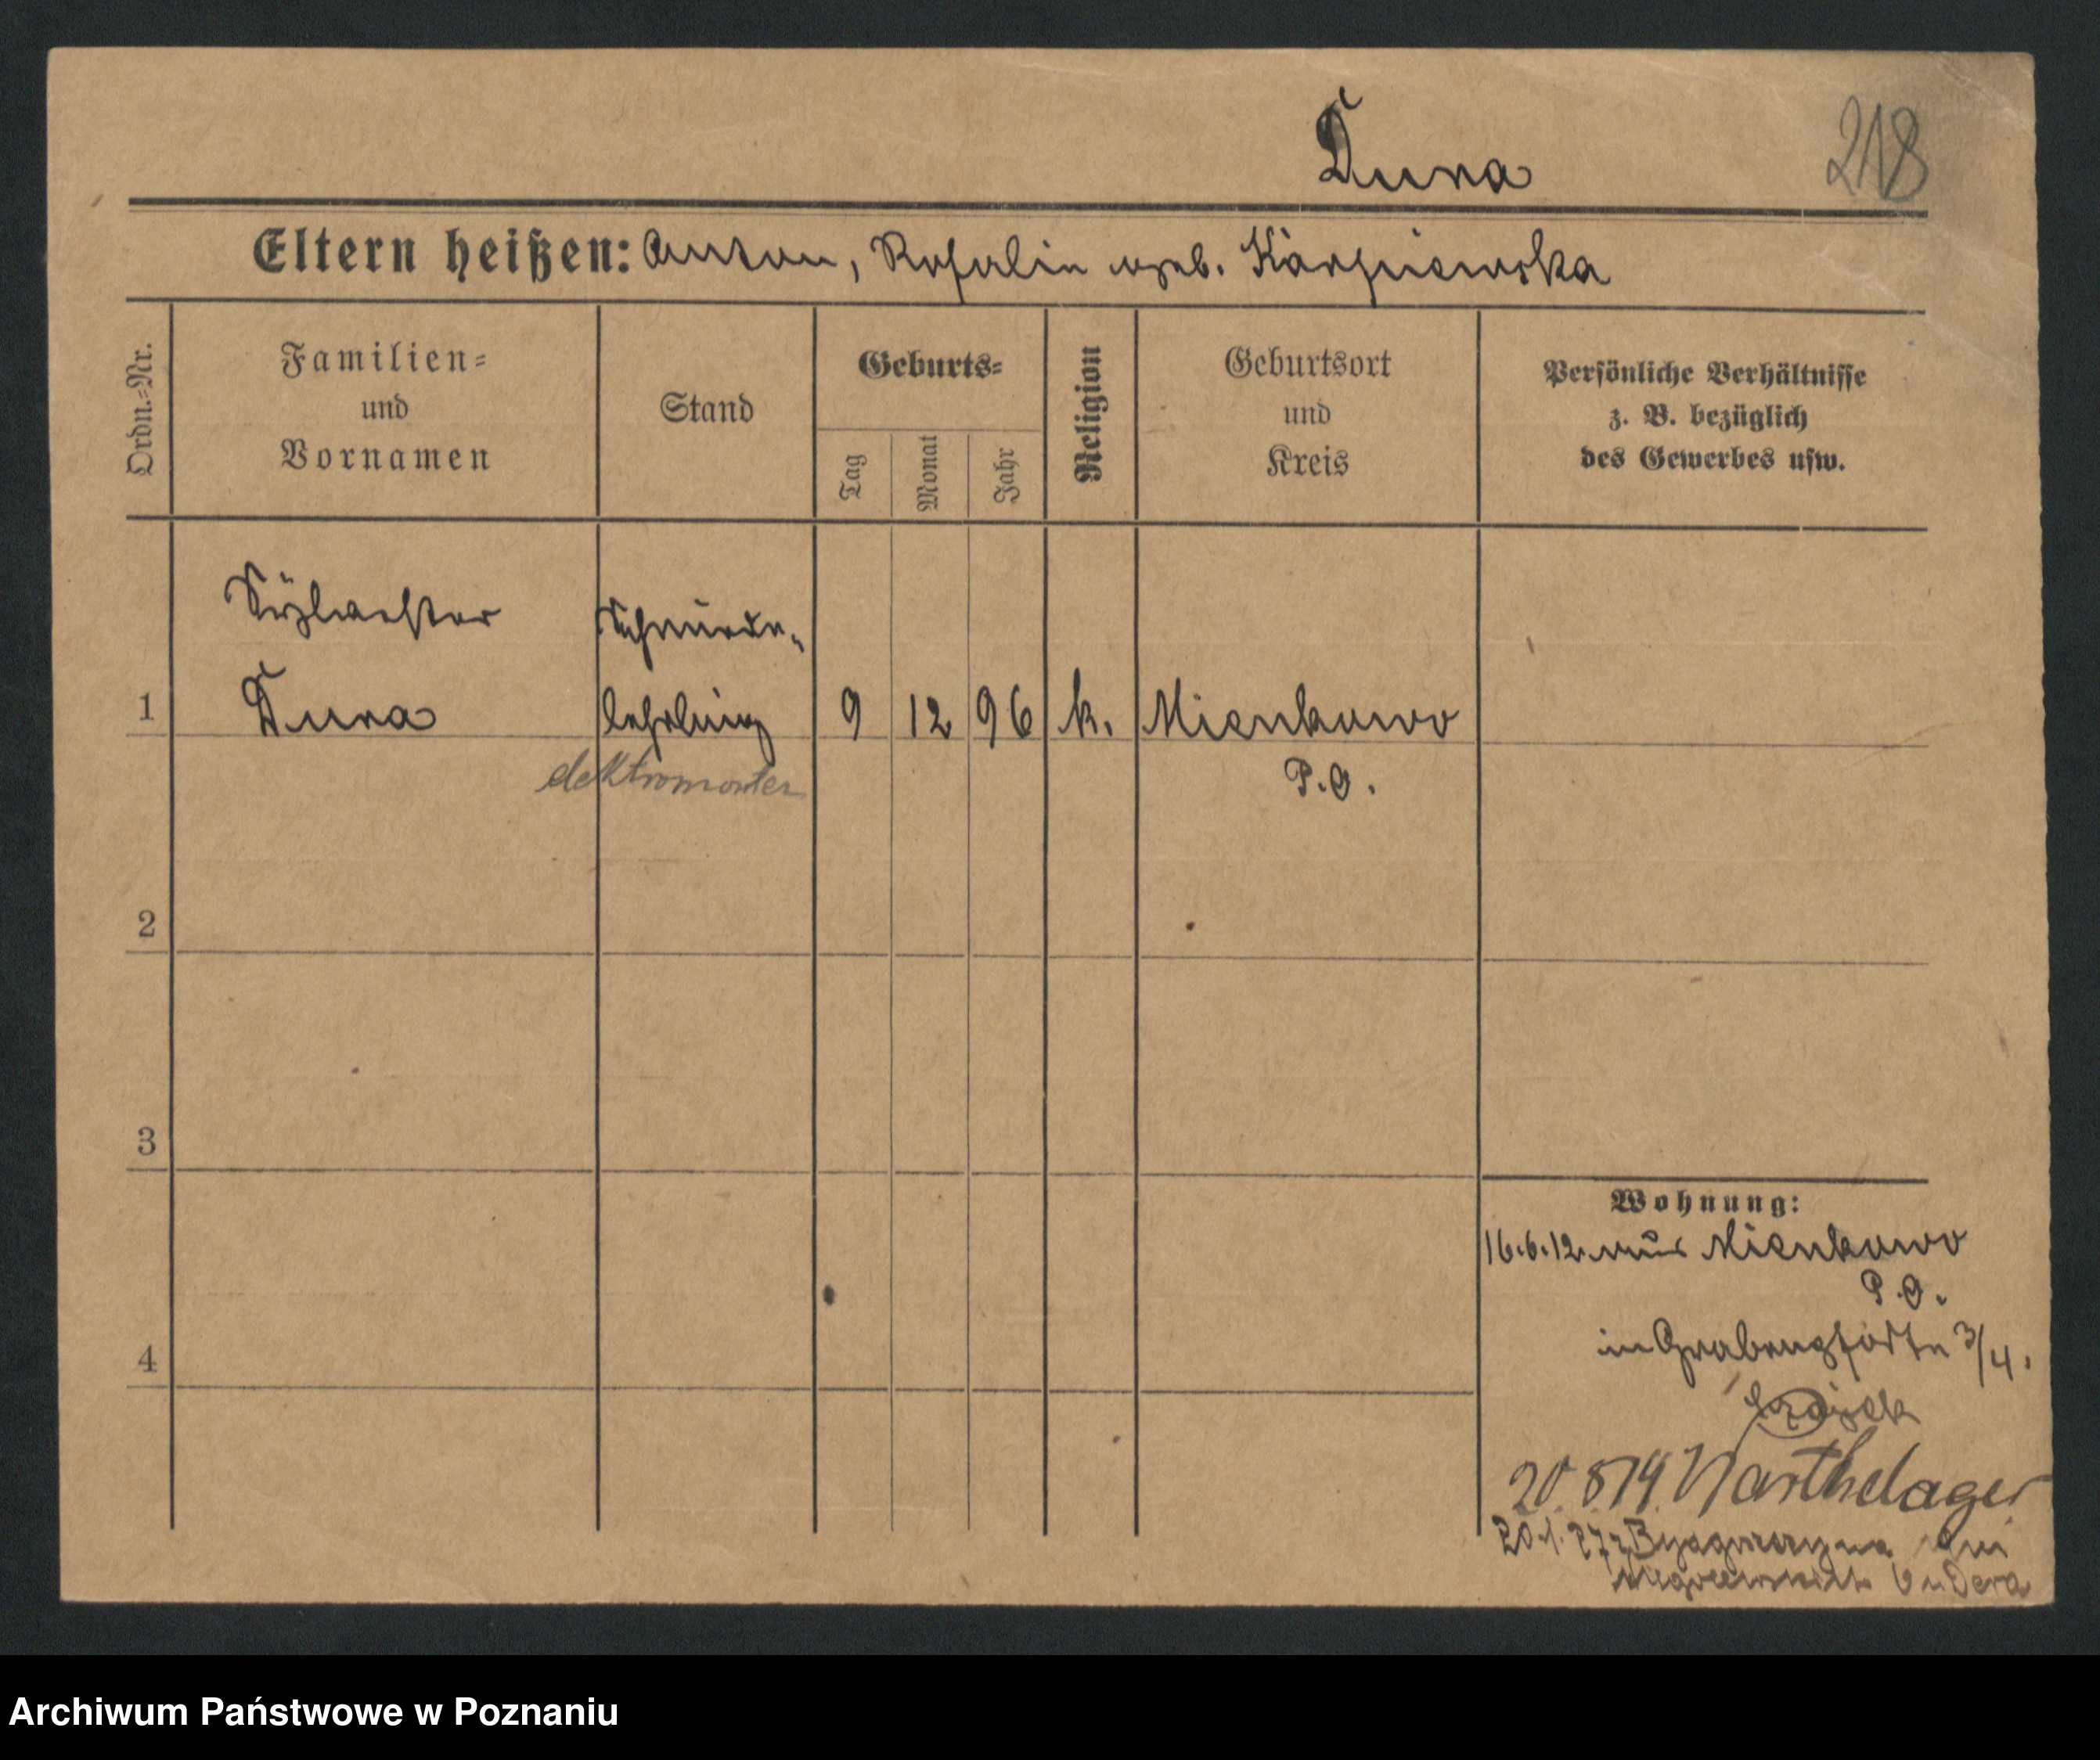 Duna
218
Eltern heißen: Anton, Rosalie geb. Karpiewska
Ordn.-Nr.
Familien-
und
Vornamen
Stand
Geburts-
Tag
Monat
Jahr
Religion
Geburtsort
und
Kreis
Persönliche Verhältnisse
z. B. bezüglich
des Gewerbes usw.
Sylvester
Duna
Schmiede-
lehrling
elektromonter
1
9
12
96
k.
Mienkowo
P.O.
2
3
4
Wohnung:
16.6.12 aus Mienkowo
P.O.
in Grabenpforte 3/4.
20.8.14. Warthelager
20.1.27
Archiwum Państwowe w Poznaniu